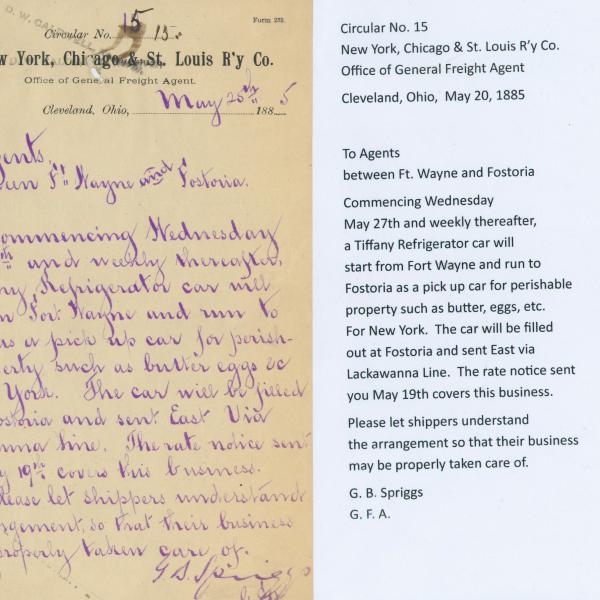 D. W. CALDWELL
Form 232.
Circular No. 15 15.
w York, Chicago & St. Louis R'y Co.
Office of General Freight Agent.
Cleveland, Ohio, May 25th 1885
gents.
een Ft. Wayne and Fostoria.
ommencing Wednesday
th and weekly thereafter,
ny Refrigerator car will
m Fort Wayne and run to
as a pick up car for perish-
erty such as butter eggs &c
York. The car will be filled
ostoria and sent East Via
anna line. The rate notice sent
y 19th covers this business.
lease let shippers understand
ngement, so that their business
properly taken care of.
G B Spriggs
Circular No. 15
New York, Chicago & St. Louis R'y Co.
Office of General Freight Agent
Cleveland, Ohio, May 20, 1885
To Agents
between Ft. Wayne and Fostoria
Commencing Wednesday
May 27th and weekly thereafter,
a Tiffany Refrigerator car will
start from Fort Wayne and run to
Fostoria as a pick up car for perishable
property such as butter, eggs, etc.
For New York. The car will be filled
out at Fostoria and sent East via
Lackawanna Line. The rate notice sent
you May 19th covers this business.
Please let shippers understand
the arrangement so that their business
may be properly taken care of.
G. B. Spriggs
G. F. A.